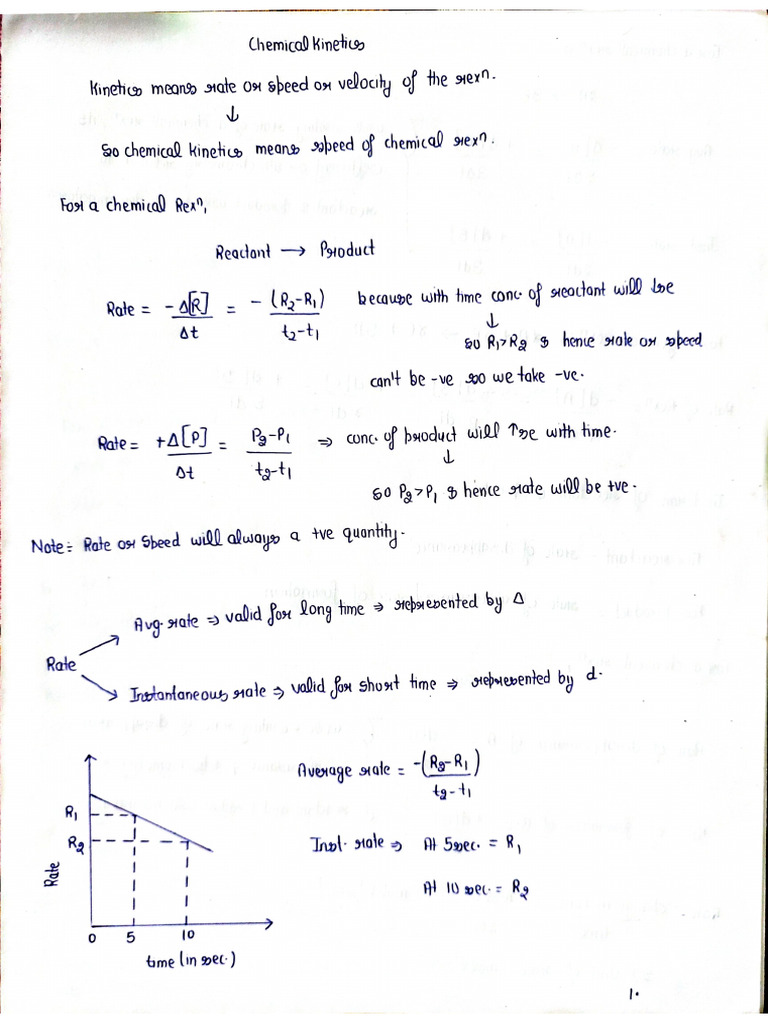 Chemical Kinetics
Kinetics means rate or speed or velocity of the rexⁿ.
↓
so chemical kinetics means speed of chemical rexⁿ.
For a chemical Rexⁿ,
Reactant → Product
Rate = -Δ[R]/Δt = -(R₂-R₁)/t₂-t₁ because with time conc. of reactant will ↓se
↓
so R₁>R₂ & hence rate or speed
can't be -ve so we take -ve.
Rate = +Δ[P]/Δt = P₂-P₁/t₂-t₁ ⇒ conc. of product will ↑se with time.
↓
so P₂>P₁ & hence rate will be +ve.
Note:- Rate or Speed will always a +ve quantity.
Rate
Avg. rate ⇒ valid for long time ⇒ represented by Δ
Instantaneous rate ⇒ valid for short time ⇒ represented by d.
Average rate = -(R₂-R₁)/t₂-t₁
Inst. rate ⇒ At 5 sec. = R₁
At 10 sec. = R₂
R₁
R₂
Rate
0 5 10
time (in sec.)
1.